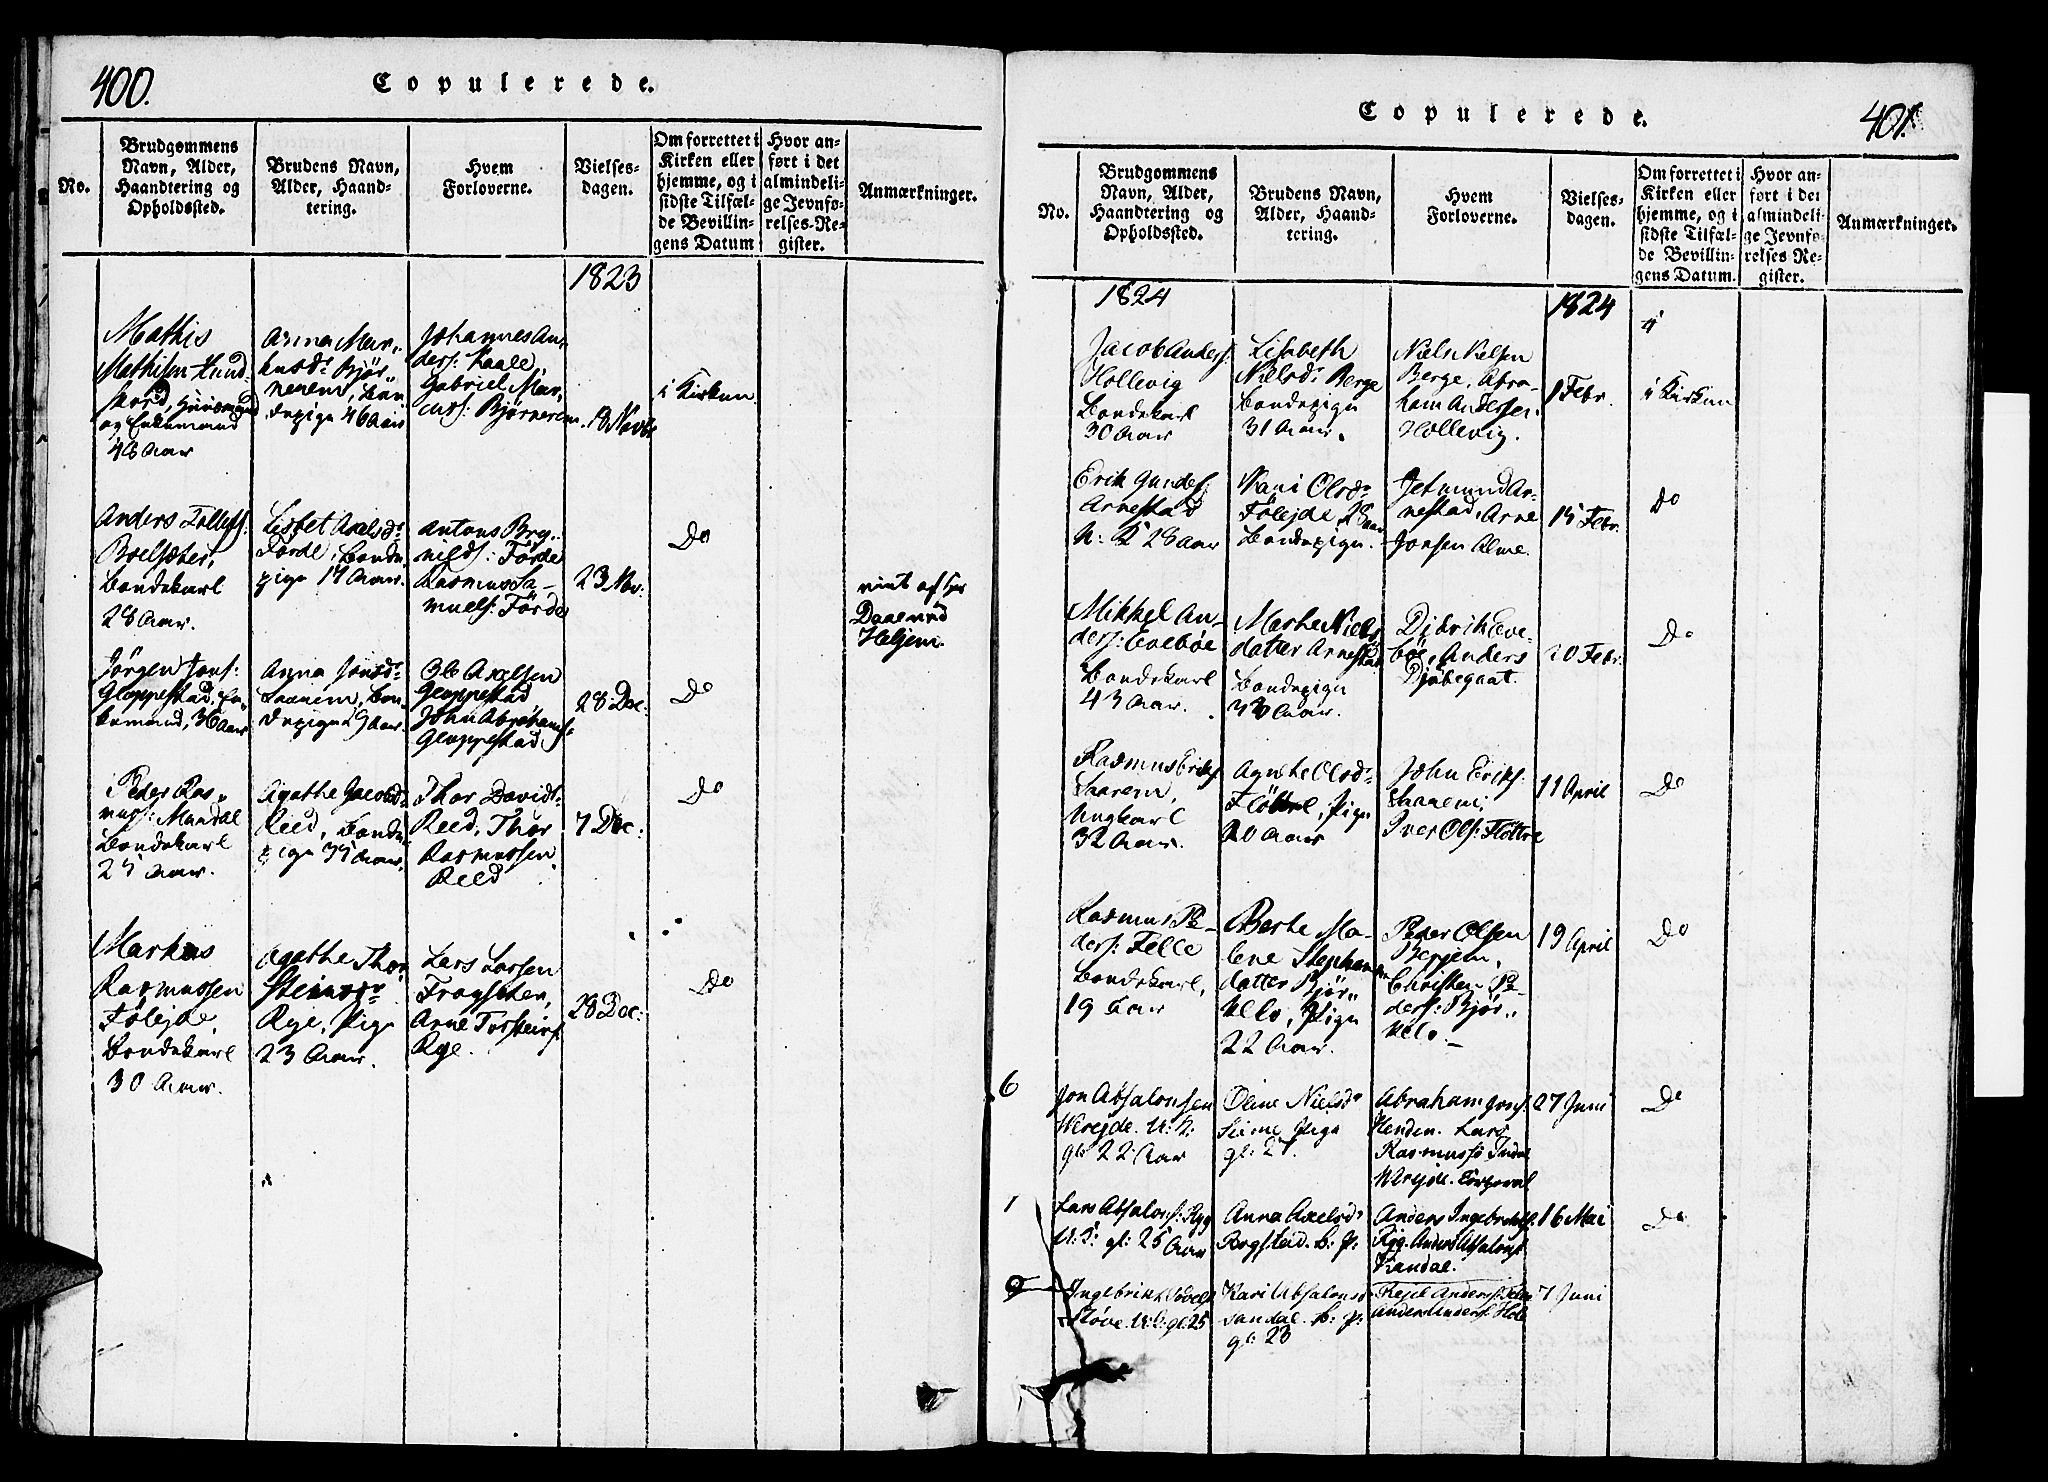 400.
Copulerede.
No.
Brudgommens
Navn, Alder,
Haandtering og
Opholdssted.
Brudens Navn,
Alder, Haand-
tering.
Hvem
Forloverne.
Vielses-
dagen.
Om forrettet i
Kirken eller
hjemme, og i
sidste Tilfæl-
de Bevillin-
gens Datum
Hvor an-
ført i det
almindeli-
ge Jevnfø-
relses-Re-
gister.
Anmærkninger.
1823
Mathis
Mathisen Hund-
skord,
og Enkemand
48 Aar
Anna Mar-
kusdr Bjør-
nerem, Bon-
depige 46 Aar
Johannes An-
ders: Kaale,
Gabriel Mar-
cuss: Bjørnerem.
18 Novbr
i Kirken
Anders Tollefs:
Boelsæter,
Bondekarl
28 Aar.
Lisbet Axelsdr
Førde, Bonde
pige 19 Aar.
Antons Bry-
nilds: Førde
Rasmus Sa-
muels: Førde
23 Nov:
Do
viet af Hr
Daae ved
Heljem.
Jørgen Jons:
Gloppestad, En-
kemand, 36 Aar
Anna Jonsdr
Saarem, Bon-
depige 29 Aar.
Ole Axelsen
Gloppestad
John Abrahams:
Gloppestad
28 Dec:
Do
Peder Ras-
muss: Mundal
Bondekarl
25 Aar.
Agathe Jacobsdr
Reed, Bonde
pige 35 Aar.
Thor Davids:
Reed, Thor
Rasmussen
Reed
7 Dec:
Do
Markus
Rasmussen
Føleide,
Bondekarl
30 Aar.
Agathe Thor
Steinsdr
Rye, Pige
23 Aar.
Lars Larsen
Frøyseter,
Arne Torsteins:
Rye.
28 Dec:
Do
Copulerede.
401.
No.
Brudgommens
Navn, Alder,
Haandtering og
Opholdssted.
Brudens Navn,
Alder, Haand-
tering.
Hvem
Forloverne.
Vielses-
dagen.
Om forrettet i
Kirken eller
hjemme, og i
sidste Tilfæl-
de Bevillin-
gens Datum.
Hvor an-
ført i det
almindeli-
ge Jevnfø-
relses Re-
gister.
Anmærkninger.
1824
1824
Jacob Anders:
Hollevig
Bondekarl
30 Aar
Lisabeth
Nielsdr Berge
Bondepige
31 Aar.
Niels Nelsen
Berge, Abra-
ham Andersen
Hollevig.
1 Febr.
i Kirken
Erik Gunders:
Arnestad
U: K 28 Aar
Mari Olsdr
Føleide, 28 Aar
Bondepige.
Jetmund Ar-
nestad, Arne
Jonsen Alme.
15 Febr.
Do
Mikkel An-
ders: Evebøe
Bondekarl
43 Aar.
Marthe Niels
datter Arnestad
Bondepige
33 Aar.
Didrik Eve-
bøe, Anders
20 Febr:
Do
Rasmus Eriks:
Saarem,
Ungkarl
32 Aar.
Agnete Olsdr
Fløttre, Pige
20 Aar
John Eriks:
Saarem,
Iver Ols: Fløttre
11 April
Do
Rasmus Pe-
ders: Felle
Bondekarl,
19 Aar
Berte Ma-
lene Stephans
datter Bjør-
kelo, Pige
22 Aar.
Peder Olsen
Berjem,
Christen Pe-
ders: Bjør-
kelo.
19 April
Do
6
Jon Absalonsen
Wereide. U: K:
gl: 22: Aar
Oline Nielsdr
Seime Pige
gl: 21.
Abraham Jons:
Henden. Lars
Rasmuss:
Wereide. Corporal
27 Juni
Do
1
Lars Absalons: Ryg
U: K: gl: 25 Aar
Anna Axelsdr
Rogstad. B: P:
Anders Ingebrigts:
Ryg. Anders Absalons:
Sandal.
16 Mai
Do
Støve. U: K: gl: 25
Kari Absalonsdr
Sandal. B: P:
gl: 23
7 Juni